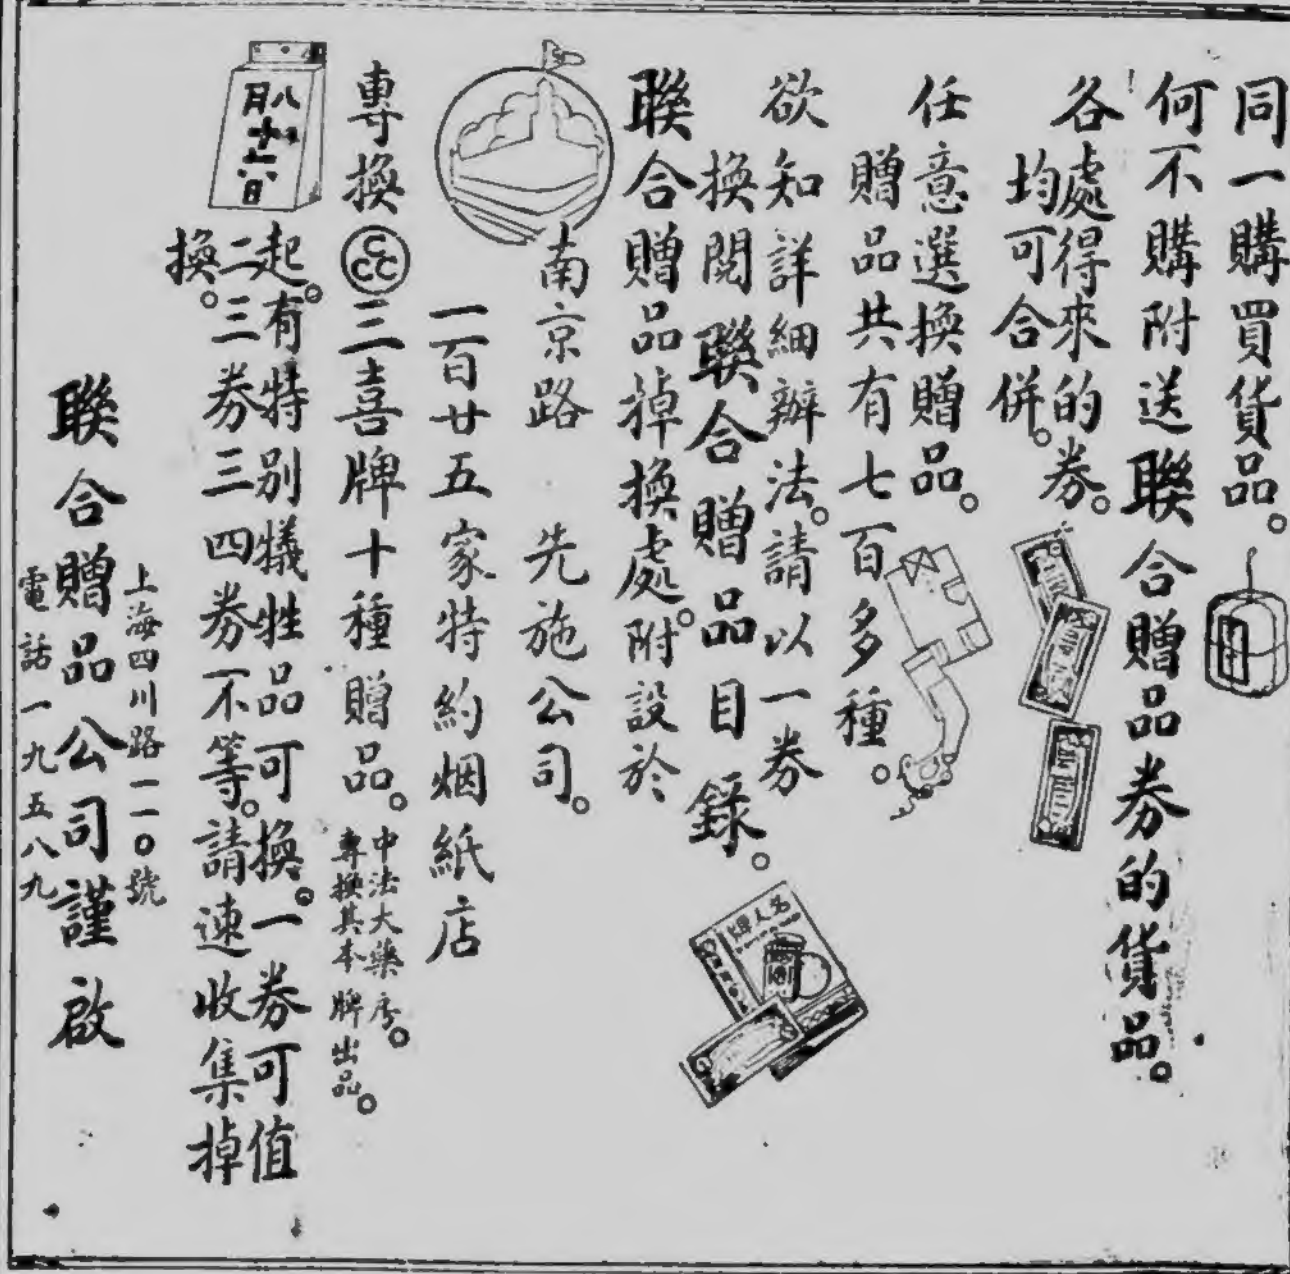 同一購買貨品。
何不購附送聯合贈品券的貨品。
各處得來的券。
均可合併。
任意選換贈品。
贈品共有七百多種。
欲知詳細辦法。請以一券
換閱聯合贈品目錄。
聯合贈品掉換處。附設於
南京路 先施公司。
一百廿五家特約烟紙店
專換CCC三喜牌十種贈品。
中法大藥房。
專換其本牌出品。
八月廿六日
起。有特别犧牲品可換。一券可值
二三券三四券不等。請速收集掉
換。
上海四川路一一〇號
聯合贈品公司謹啟
電話一九五八九